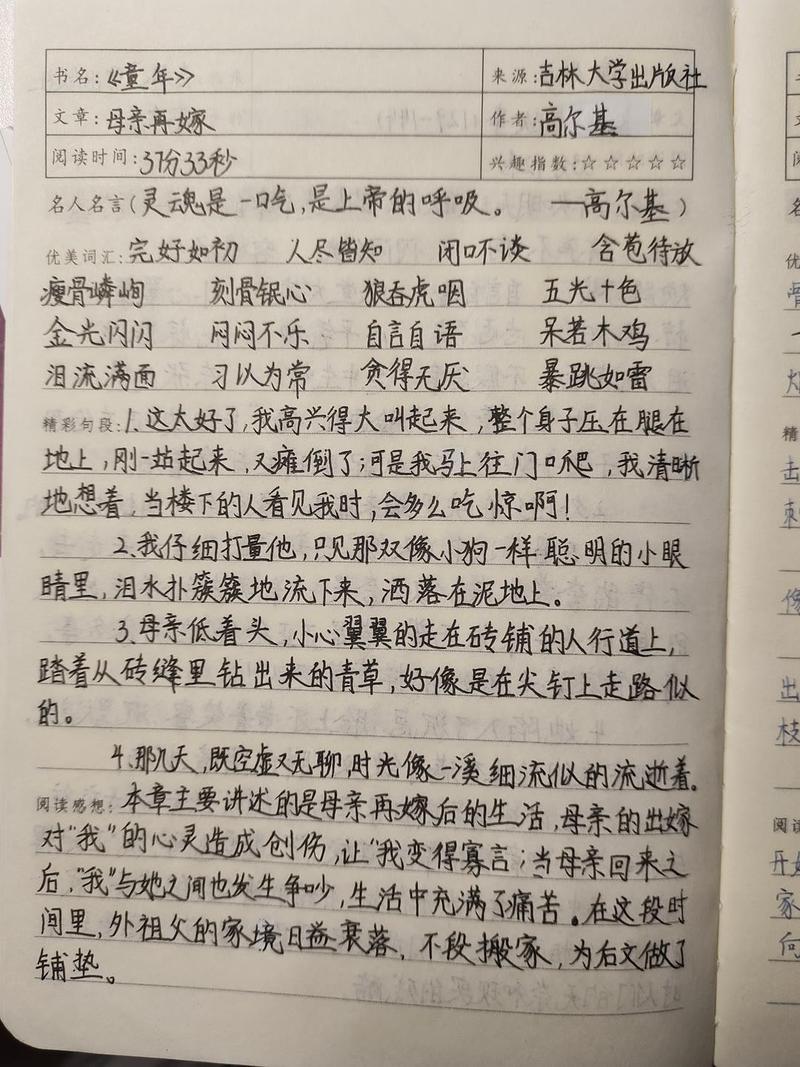 书名:《童年》 来源:吉林大学出版社
文章:母亲再嫁 作者:高尔基
阅读时间:37分33秒 兴趣指数:☆☆☆☆☆
名人名言(灵魂是一口气,是上帝的呼吸。 —高尔基)
优美词汇:完好如初 人尽皆知 闭口不谈 含苞待放
瘦骨嶙峋 刻骨铭心 狼吞虎咽 五光十色
金光闪闪 闷闷不乐 自言自语 呆若木鸡
泪流满面 习以为常 贪得无厌 暴跳如雷
精彩句段:1.这太好了,我高兴得大叫起来,整个身子压在腿在
地上,刚一站起来,又瘫倒了;可是我马上往门口爬,我清晰
地想着,当楼下的人看见我时,会多么吃惊啊!
2.我仔细打量他,只见那双像小狗一样聪明的小眼
睛里,泪水扑簌簌地流下来,洒落在泥地上。
3.母亲低着头,小心翼翼的走在砖铺的人行道上,
踏着从砖缝里钻出来的青草,好像是在尖钉上走路似
的。
4.那几天,既空虚又无聊,时光像一溪细流似的流逝着。
阅读感想:本章主要讲述的是母亲再嫁后的生活,母亲的出嫁
对“我”的心灵造成创伤,让“我变得寡言;当母亲回来之
后,“我”与她之间也发生争吵,生活中充满了痛苦。在这段时
间里,外祖父的家境日益衰落,不段搬家,为后文做了
铺垫。